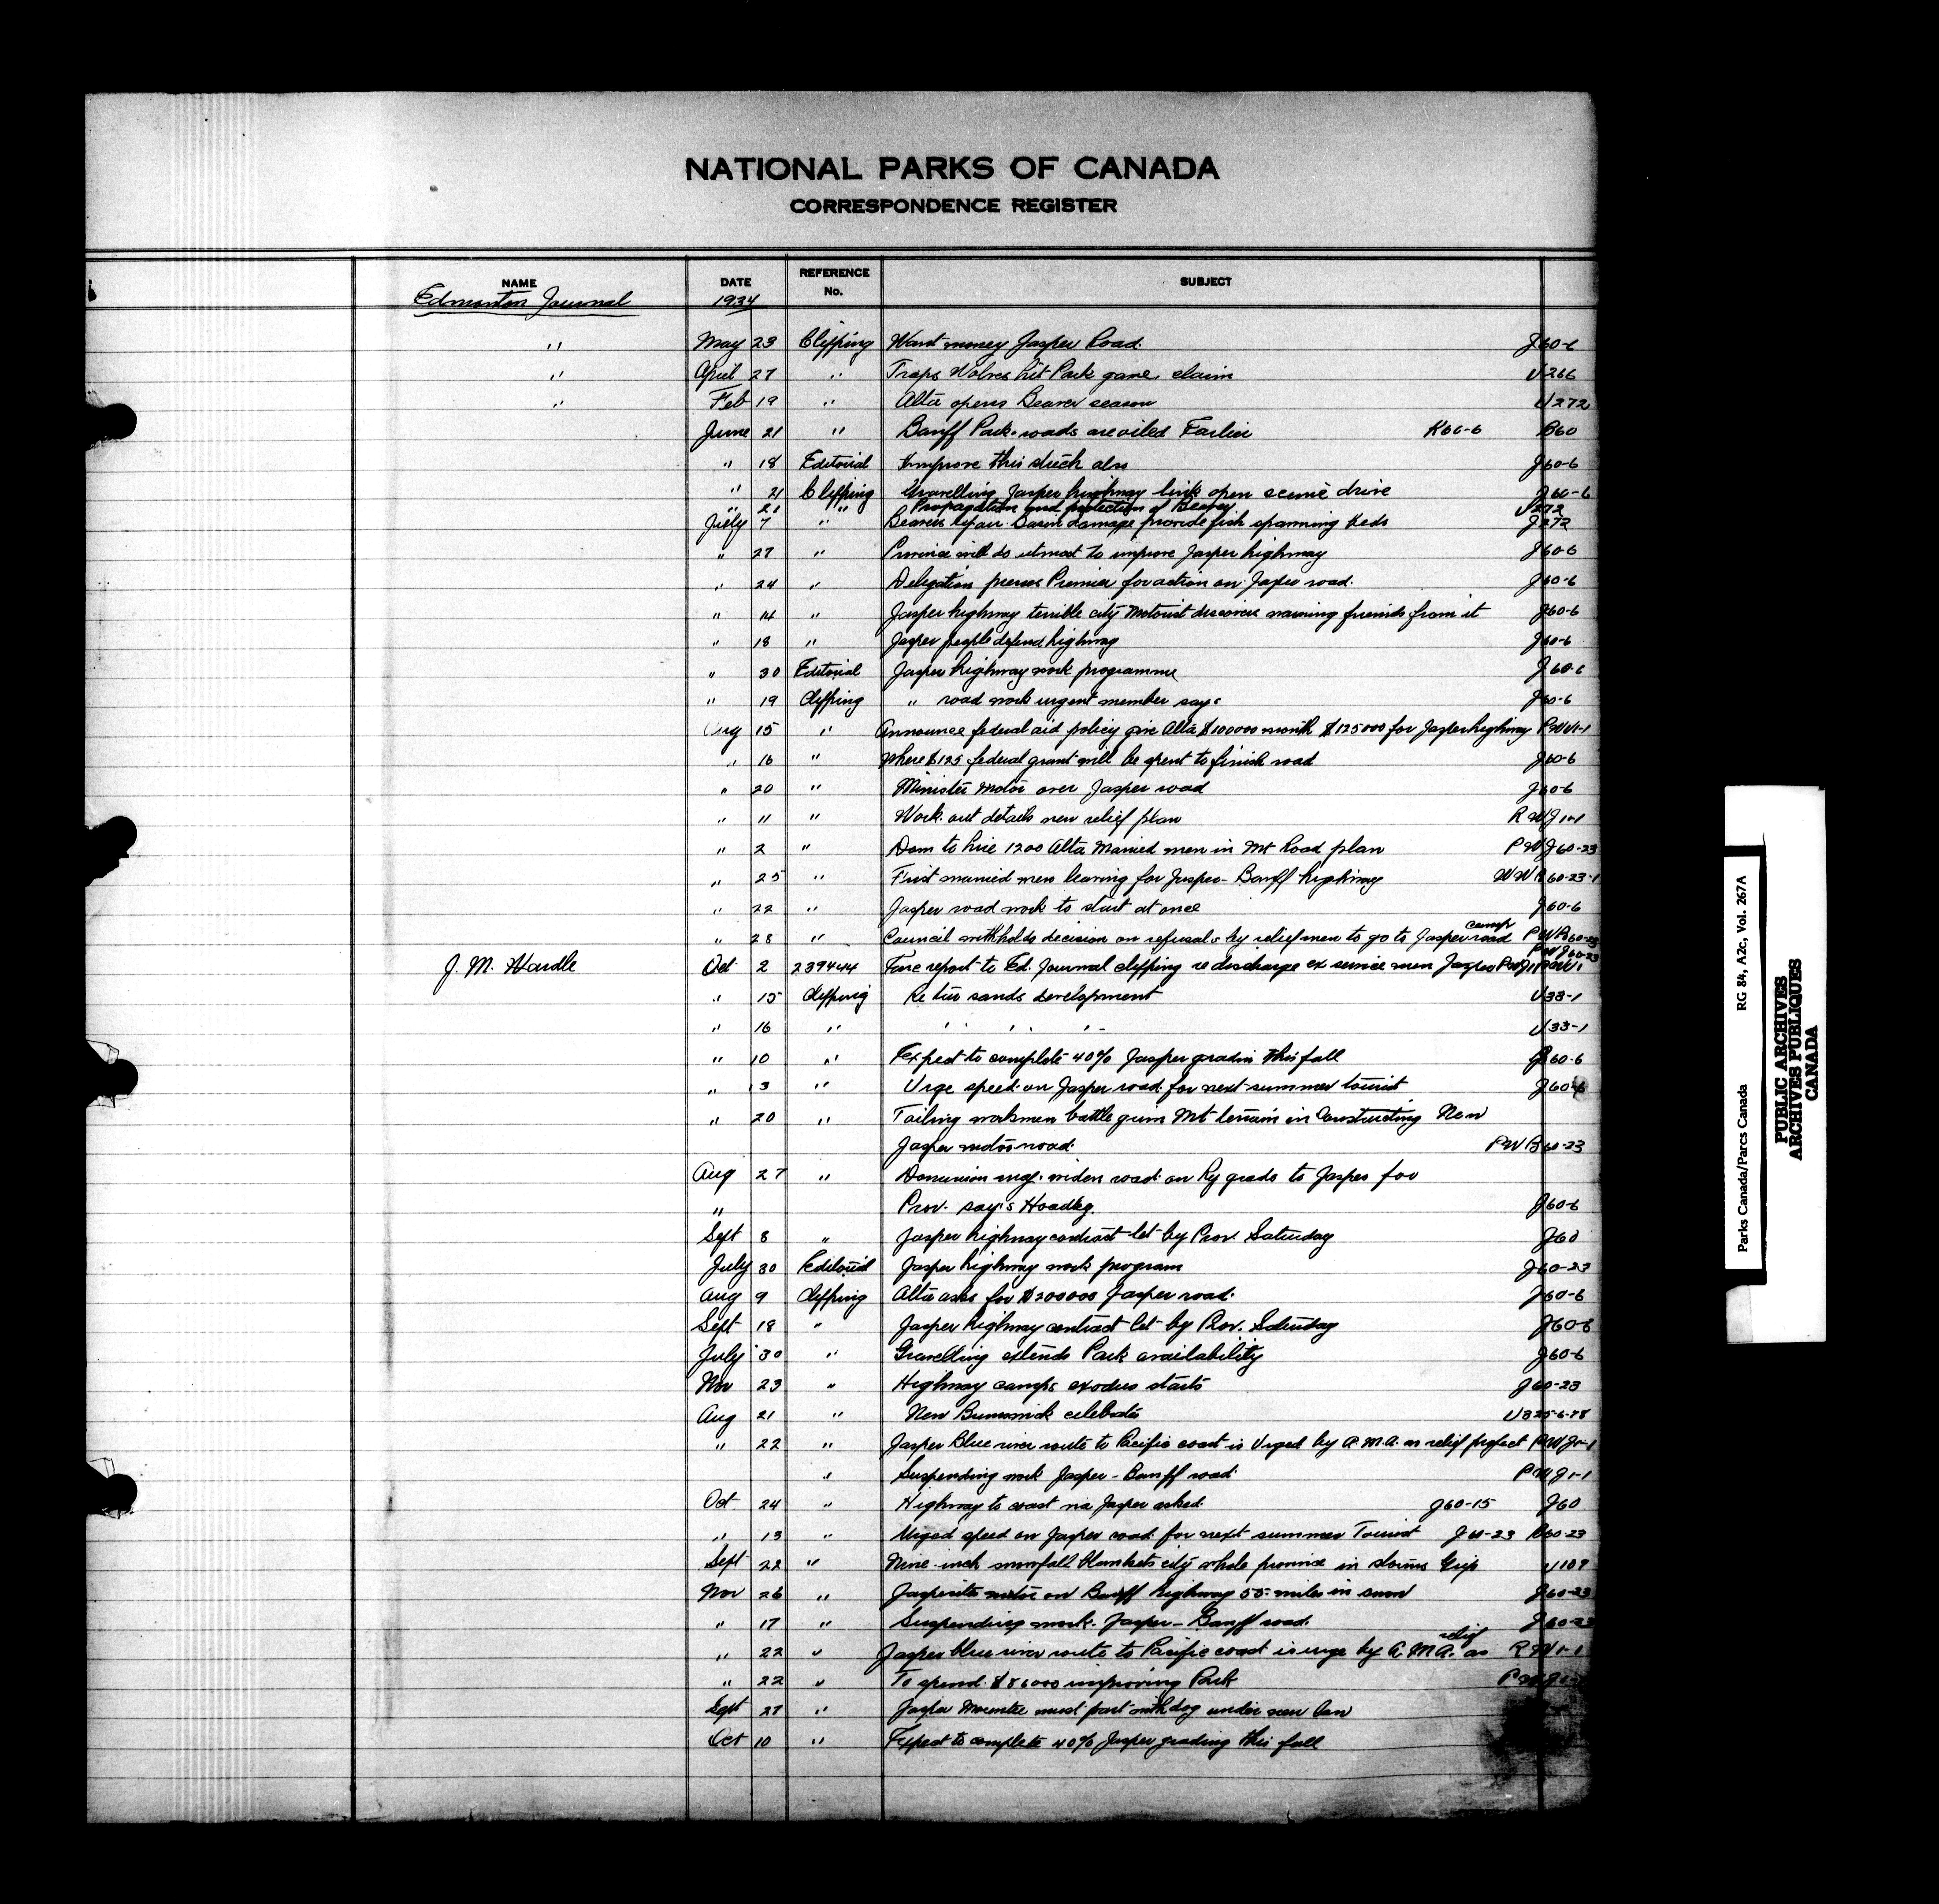 NATIONAL PARKS OF CANADA
CORRESPONDENCE REGISTER
NAME DATE REFERENCE No. SUBJECT
Edmonton Journal 1934
" May 23 Clipping Want money Jasper Road. J60-6
" April 27 " Traps Wolves hit Park game, claim U266
" Feb 19 " Alta opens Beaver season U272
June 21 " Banff Park roads are oiled Earlier K60-6 B60
" 18 Editorial Improve this also J60-6
" 21 Clipping Gravelling Jasper highway link open scenic drive J60-6
" 21 " Propagation and protection of Beaver U272
July 7 " Beavers repair Dam damage, provide fish spawning beds J272
" 27 " Province will do utmost to improve Jasper highway J60-6
" 24 " Delegation presses Premier for action on Jasper road. J60-6
" 14 " Jasper highway terrible city Motorist discovers warning friends from it J60-6
" 18 " Jasper people defend highway J60-6
" 30 Editorial Jasper highway work programme J60-6
" 19 Clipping " road work urgent member says J60-6
Aug 15 " Announce federal aid policy give Alta $100000 month $125000 for Jasper highway
" 16 " Where $125 federal grant will be spent to finish road J60-6
" 20 " Minister motor over Jasper road J60-6
" 11 " Work out details new relief plan
" 2 " Dom to hire 1200 Alta Married men in Mt Road plan PWJ60-23
" 25 " First married men leaving for Jasper-Banff highway 60-23-1
" 22 " Jasper road work to start at once J60-6
camp
" 28 " Council withholds decision on refusals by relief men to go to Jasper road PWB60-23
PWJ60-23
J. M. Wardle Oct 2 239444 report to Ed. Journal clipping re discharge ex service men Jasper
" 15 clipping Re tar sands development U33-1
" 16 " " " " U33-1
" 10 " Expect to complete 40% Jasper gradin this fall J60-6
" 13 " Urge speed on Jasper road for next summer tourist J60-6
" 20 " Toiling workmen battle grim Mt terrain in Constructing New
Jasper motor road. PWB60-23
Aug 27 " Dominion widen road on Ry grade to Jasper for
" Prov. says Hoadley. J60-6
Sept 8 " Jasper highway contract let by Prov. Saturday J60
July 30 Editorial Jasper highway work program J60-23
Aug 9 clipping Alta asks for $200000 Jasper road. J60-6
Sept 18 " Jasper highway contract let by Prov. Saturday J60-6
July 30 " Gravelling extends Park availability J60-6
Nov 23 " Highway camps exodus starts J60-23
Aug 21 " New Brunswick celebrates
" 22 " Jasper Blue river route to Pacific coast is Urged by A.M.A. as relief project PWJ1-1
" Suspending work Jasper-Banff road. PWJ1-1
Oct 24 " Highway to coast via Jasper asked. J60-15 J60
" 13 " Urged speed on Jasper road for next summer Tourist J60-23 B60-23
Sept 22 " Nine inch snowfall blankets city whole province in storms Grip U109
Nov 26 " Jasperites motor on Banff highway 55 miles in snow J60-23
" 17 " Suspending work. Jasper-Banff road. J60-23
relief
" 22 " Jasper blue river route to Pacific coast is urge by A.M.A. as
" 22 " To spend $86000 improving Park
Sept 27 " Jasper Mountie must part with dog under new law
Oct 10 " Expect to complete 40% Jasper grading this fall
Parks Canada/Parcs Canada RG 84, A2c, Vol. 267A
PUBLIC ARCHIVES
ARCHIVES PUBLIQUES
CANADA